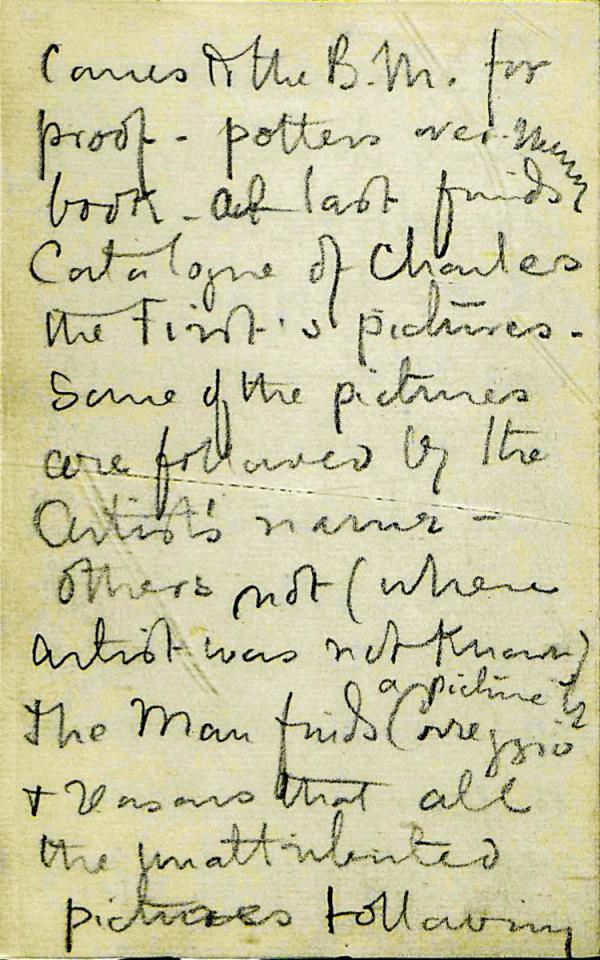 Comes to the B.M. for
proof - potters over many
book - at last finds
Catalogue of Charles
the First's pictures -
Some of the pictures
are followed by the
Artist's name -
others not (where
artist was not known)
a picture by
The Man finds Correggio
+ that all
the unattributed
pictures following